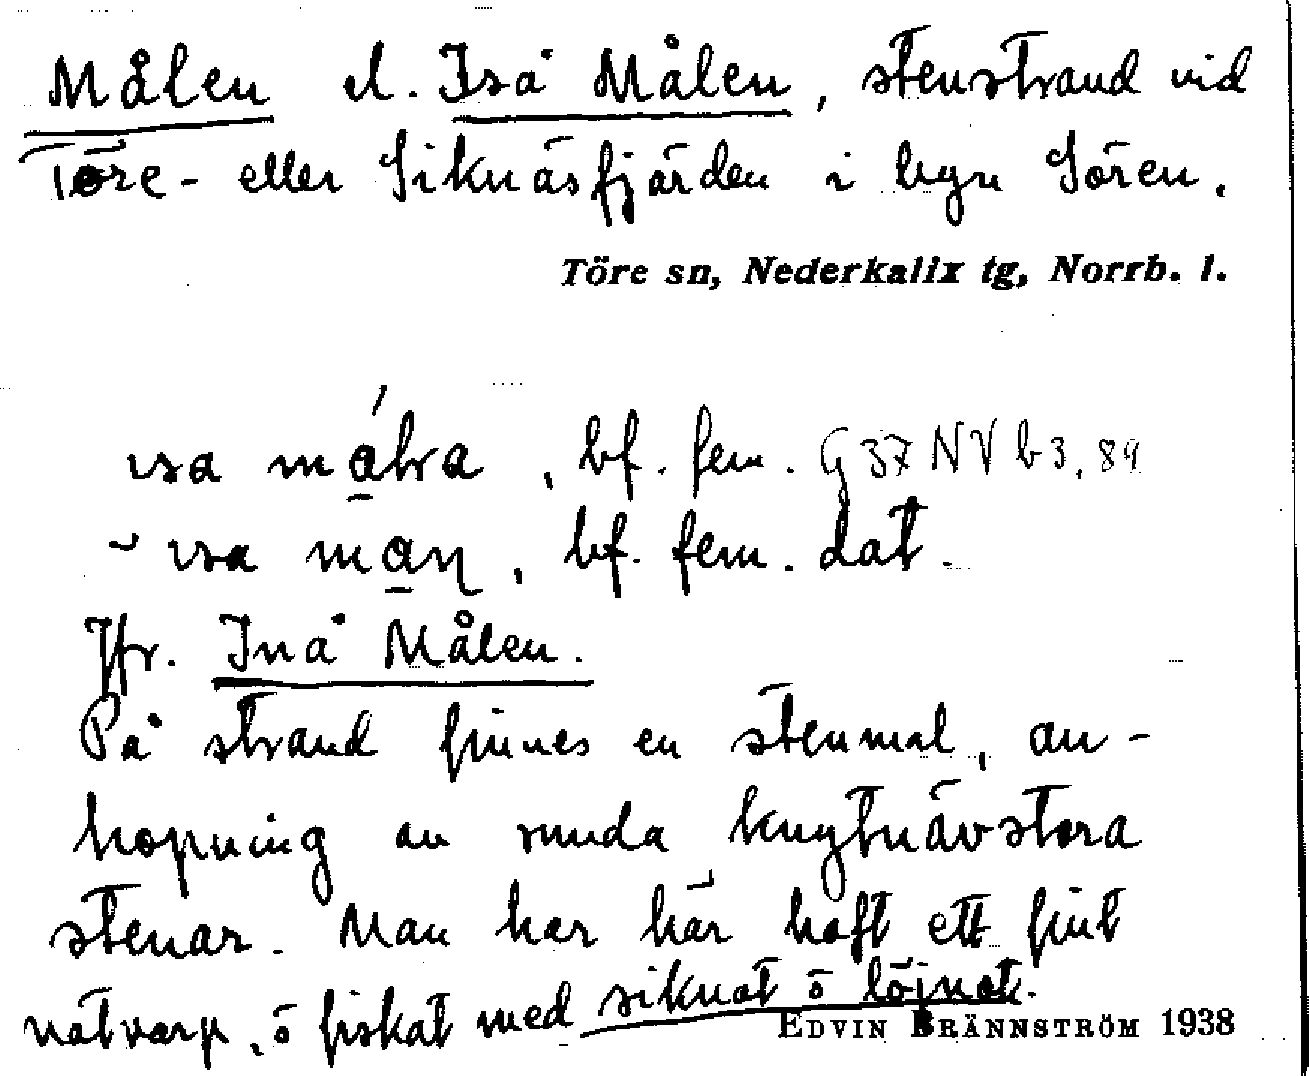 Målen el. Iså Målen, stenstrand vid
Töre- eller Siknäsfjärden i byn Sören.
Töre sn, Nederkalix tg, Norrb. l.
bf. fem. G 37 N V b 3, 89
bf. fem. dat.
Jfr. Inå Målen.
På strand finnes en stenmal, an-
hopning av runda knytnävstora
stenar. Man har här haft ett fint
notvarp, ö fiskat med siknot ö löjnot.
EDVIN BRÄNNSTRÖM 1938